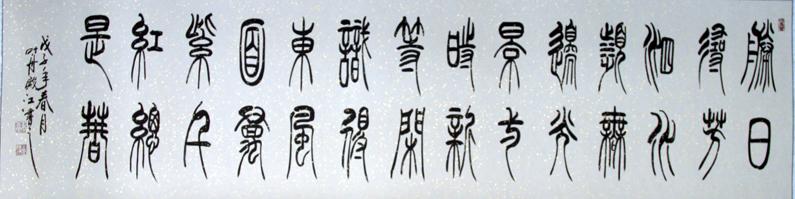 勝日
尋芳
泗水
濱無
邊光
景一
時新
等閒
識得
東風
面萬
紫千
紅總
是春
戊子年春月